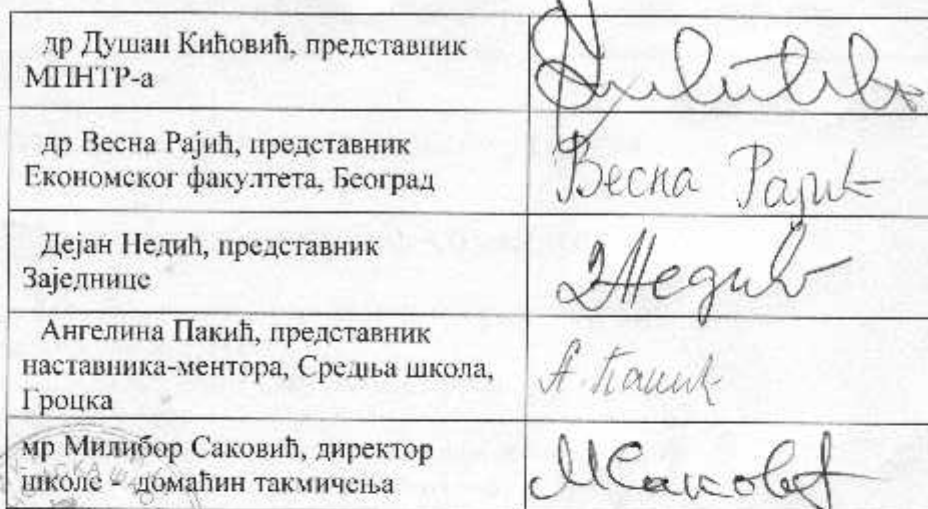 др Душан Кићовић, представник
МПНТР-а
др Весна Рајић, представник
Економског факултета, Београд
Весна Рајић
Дејан Недић, представник
Заједнице
ДНедић
Ангелина Пакић, представник
наставника-ментора, Средња школа,
Гроцка
А. Пакић
мр Милибор Саковић, директор
школе – домаћин такмичења
МСаковић